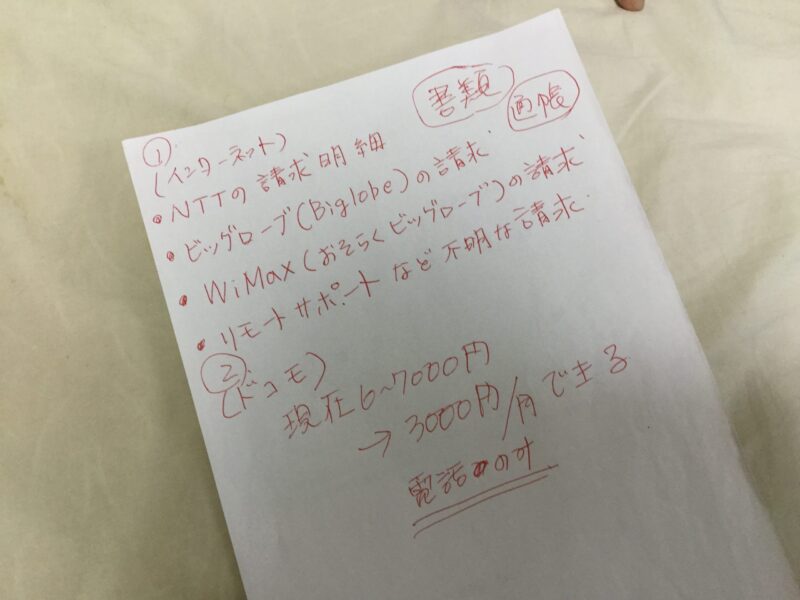 書類
通帳
①
(インターネット)
• NTTの請求明細
• ビッグローブ(Biglobe)の請求
• WiMax(おそらくビッグローブ)の請求
• リモートサポートなど不明な請求
②
(ドコモ)
現在6~7000円
→3000円/月できる
電話のみ